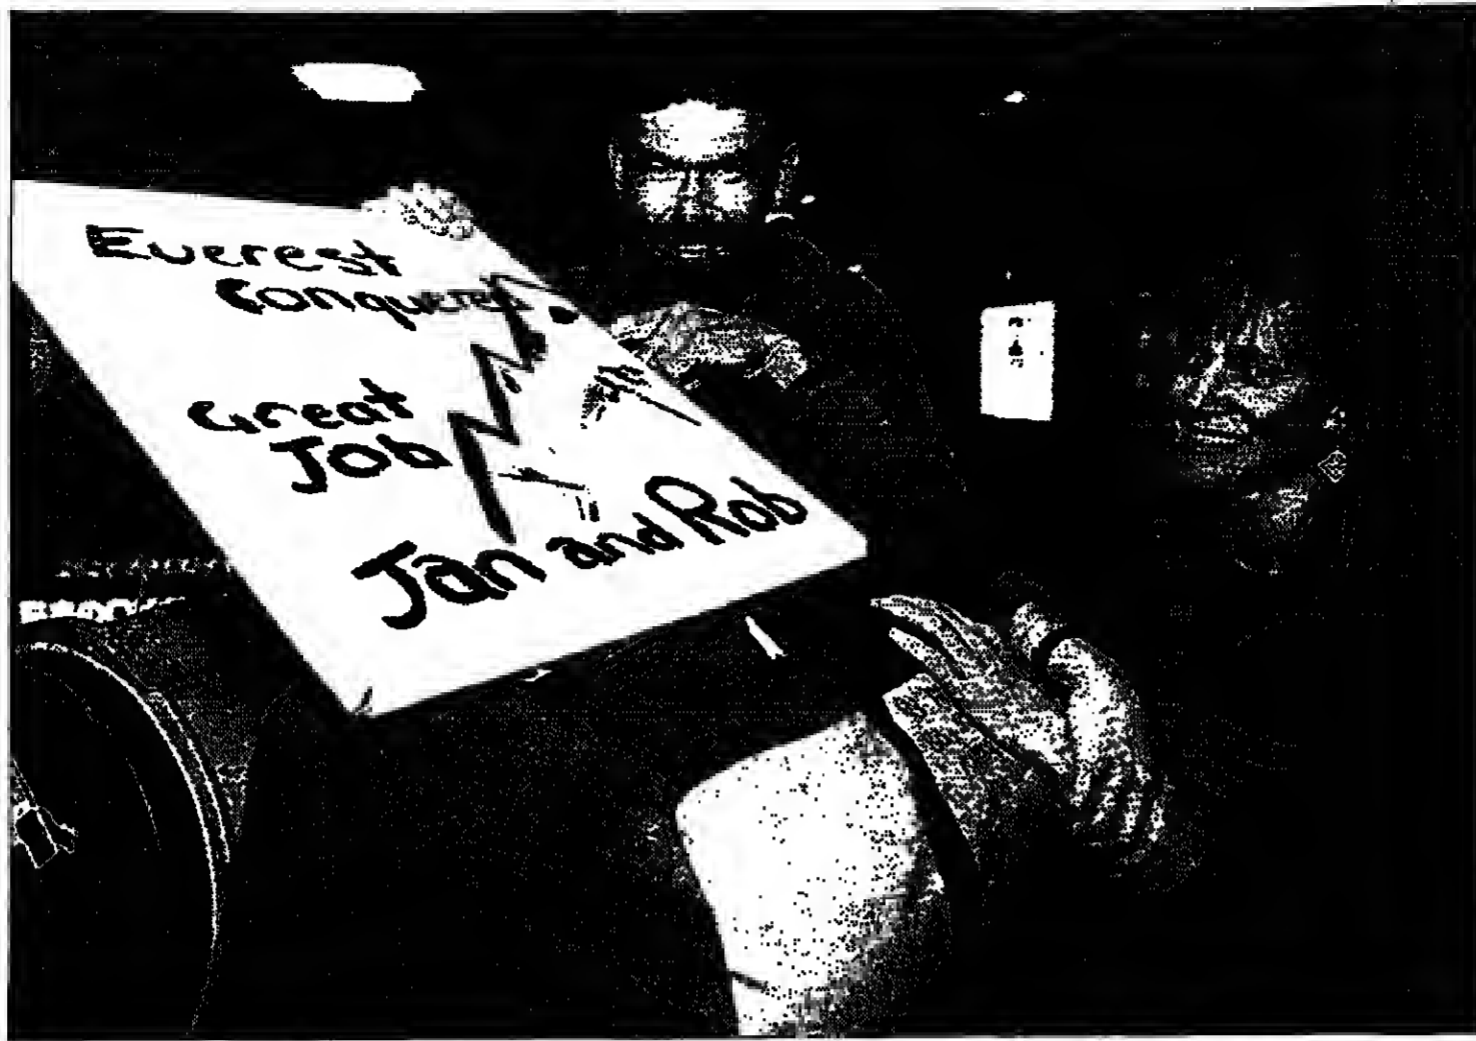 Everest
Conquered
Great
Job
Jan and Rob